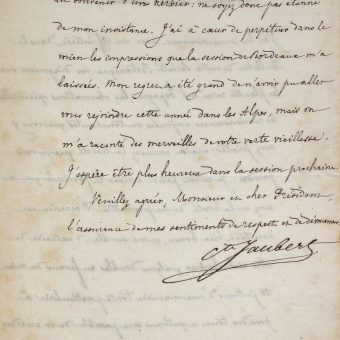 du souvenir d'une herbier: ne soyez donc pas étonné
de mon insistance. J'ai à cœur de perpétuer dans le
mien les impressions que la session de Bordeaux m'a
laissées. Mon regret a été grand de n'avoir pu aller
vous rejoindre cette année dans les Alpes, mais on
m'a raconté des merveilles de votre verte vieillesse.
J'espère être plus heureux dans la session prochaine.
Veuillez agréer, Monsieur et cher Président,
l'assurance de mes sentiments de respect et de dévouement.
Cte Jaubert